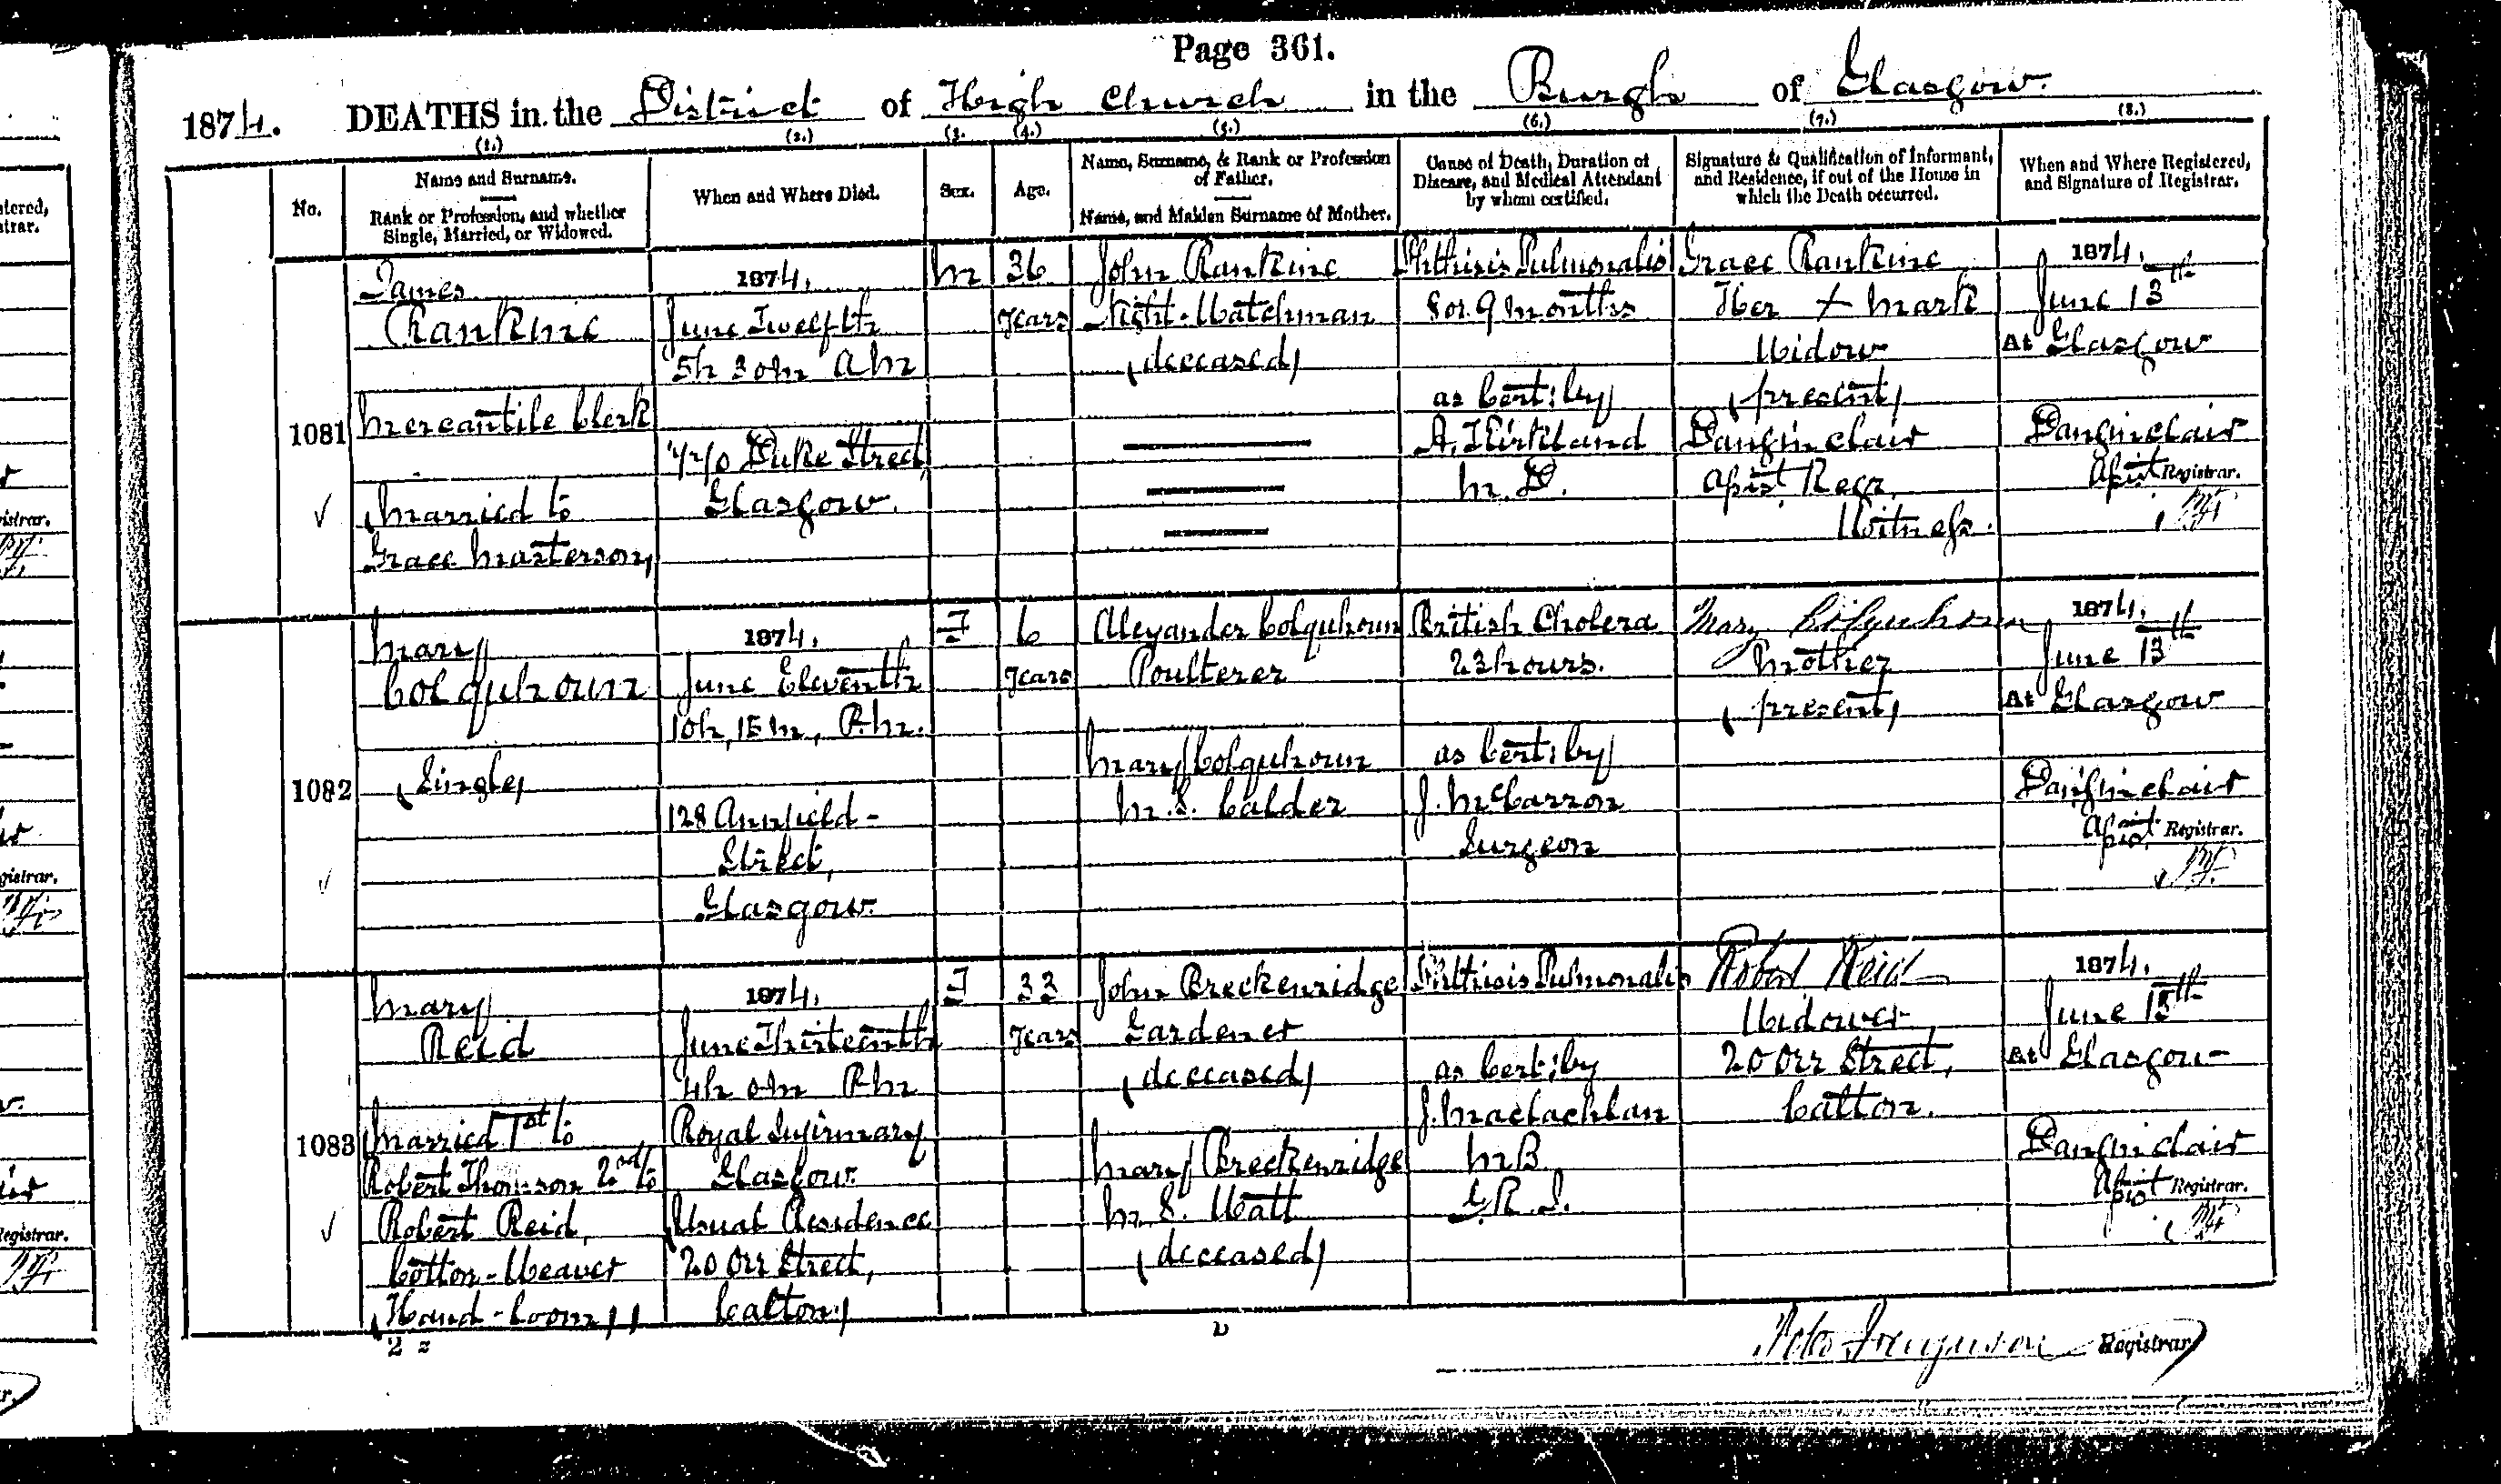 Page 361.
1874. DEATHS in the District of High Church in the Burgh of Glasgow.
(1.) (2.) (3. (4.) (5.) (6.) (7.) (8.)
No.
Name and Surname.
Rank or Profession, and whether
Single, Married, or Widowed.
When and Where Died.
Sex.
Age.
Name, Surname, & Rank or Profession
of Father.
Name, and Maiden Surname of Mother.
Cause of Death, Duration of
Disease, and Medical Attendant
by whom certified.
Signature & Qualification of Informant,
and Residence, if out of the House in
which the Death occurred.
When and Where Registered,
and Signature of Registrar.
1081
James
Rankine
Mercantile Clerk
(Married to
Grace Masterson)
1874.
June Twelfth
5h 30m A M
Duke Street,
Glasgow.
M
36
Years
John Rankine
Night-Watchman
(deceased)
Phthisis Pulmonalis
8 or 9 months
as Cert: by
A. Kirkland
M. D.
Grace Rankine
Her + Mark
Widow
(present)
Dan Sinclair
Assist. Regr.
Witness.
1874.
June 13th
At Glasgow
Dan Sinclair
Assist Registrar.
1082
Mary
Colquhoun
(Single)
1874.
June Eleventh
10h, 15m, P.M.
128 Annfield-
Street,
Glasgow.
F
6
Years
Alexander Colquhoun
Poulterer
Mary Colquhoun
M. S. Calder
British Cholera
23 hours.
as Cert: by
J. McCarron
Surgeon
Mary Colquhoun
Mother
(present)
1874.
June 13th
At Glasgow
Dan Sinclair
Assist Registrar.
1083
Mary
Reid
(Married 1st to
Robert Thomson 2nd to
Robert Reid,
Cotton-Weaver
(Hand-loom))
1874.
June Thirteenth
4h 0m P M
Royal Infirmary
Glasgow.
(Usual Residence
20 Orr Street,
Calton)
F
33
Years
John Breckenridge
Gardener
(deceased)
Mary Breckenridge
M. S. Watt
(deceased)
Phthisis Pulmonalis
as Cert: by
J. Maclachlan
M B
G. R. I.
Robert Reid
Widower
20 Orr Street,
Calton.
1874.
June 15th
At Glasgow
Dan Sinclair
Assist Registrar.
2 =
Ferguson Registrar